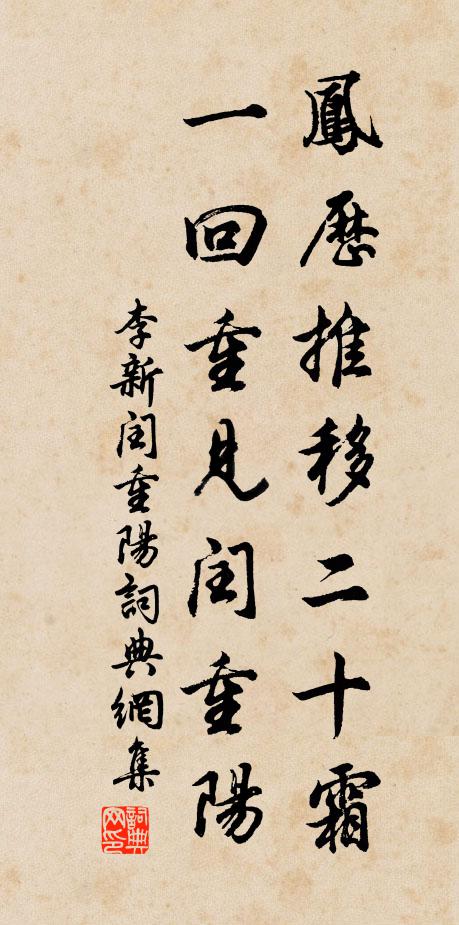 鳳歷推移二十霜
一回重見閏重陽
李新閏重陽詞典網集
詞典
网印